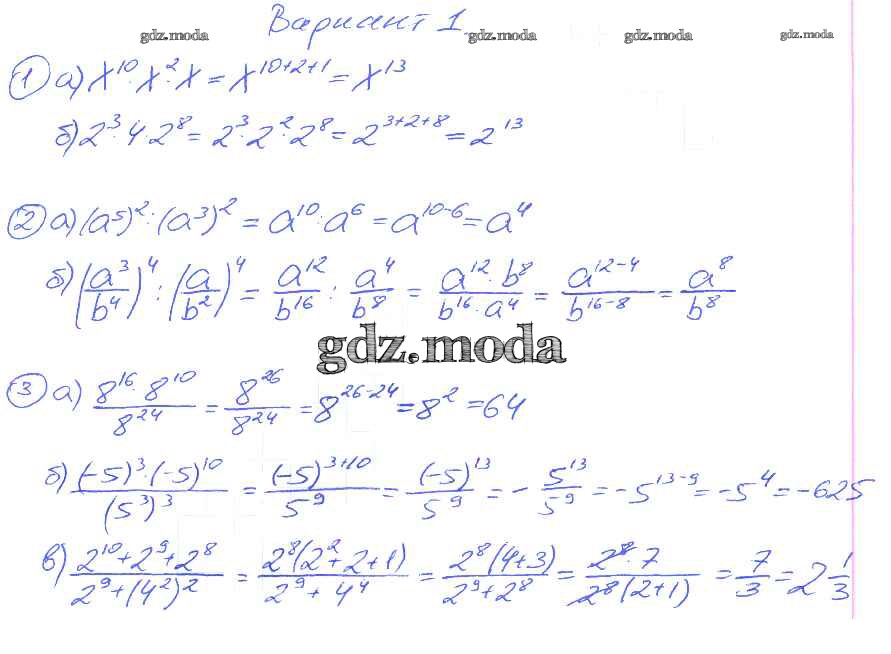 Вариант 1
gdz.moda gdz.moda gdz.moda gdz.moda
① а) x¹⁰·x²·x = x¹⁰⁺²⁺¹ = x¹³
б) 2³·4·2⁸ = 2³·2²·2⁸ = 2³⁺²⁺⁸ = 2¹³
② а) (a⁵)² : (a³)² = a¹⁰ : a⁶ = a¹⁰⁻⁶ = a⁴
б) (a³/b⁴)⁴ : (a/b²)⁴ = a¹²/b¹⁶ : a⁴/b⁸ = (a¹²·b⁸)/(b¹⁶·a⁴) = a¹²⁻⁴/b¹⁶⁻⁸ = a⁸/b⁸
gdz.moda
③ а) (8¹⁶·8¹⁰)/8²⁴ = 8²⁶/8²⁴ = 8²⁶⁻²⁴ = 8² = 64
б) ((-5)³·(-5)¹⁰)/(5³)³ = (-5)³⁺¹⁰/5⁹ = (-5)¹³/5⁹ = -5¹³/5⁹ = -5¹³⁻⁹ = -5⁴ = -625
в) (2¹⁰+2⁹+2⁸)/(2⁹+(4²)²) = 2⁸(2²+2+1)/(2⁹+4⁴) = 2⁸(4+3)/(2⁹+2⁸) = 2⁸·7/(2⁸(2+1)) = 7/3 = 2 1/3